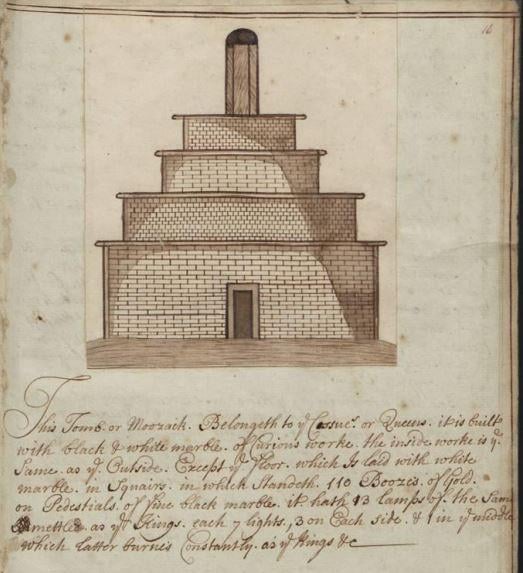 16
This Tomb or Moozach. Belongeth to yͤ Cossues. or Queens. it is built
with black & white marble. of Curious worke. the inside worke is yͤ
Same. as yͤ Outside. Except yͤ floor. which Is laid with white
marble. in Squairs. in which Standeth. 110 Boozes. of Gold.
on Pedestials. of fine black marble. it. hath 13 lamps of. the Same
mettle. as yͤ Kings. each 7 lights, 3 on Each side. & 1 in yͤ middle
which latter burnes Constantly. as yͤ Kings &c